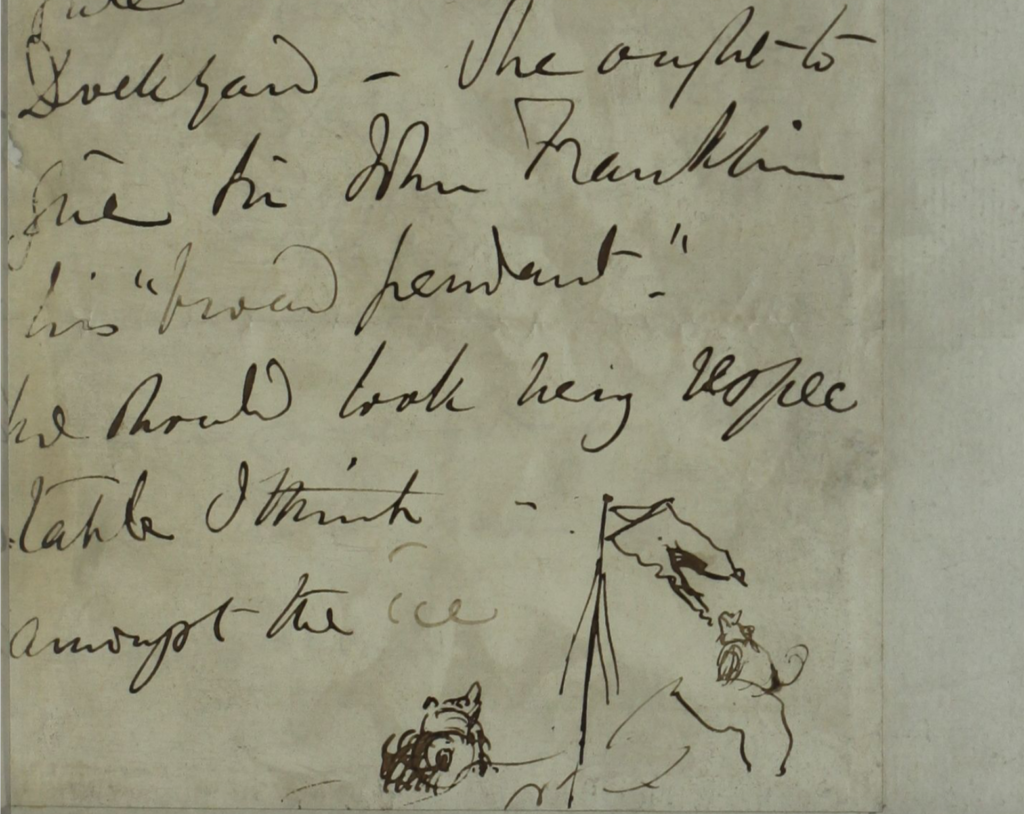 Dockyard - She ought to
give Sir John Franklin
his "broad pendant."
he should look very respec
table I think -
amongst the ice